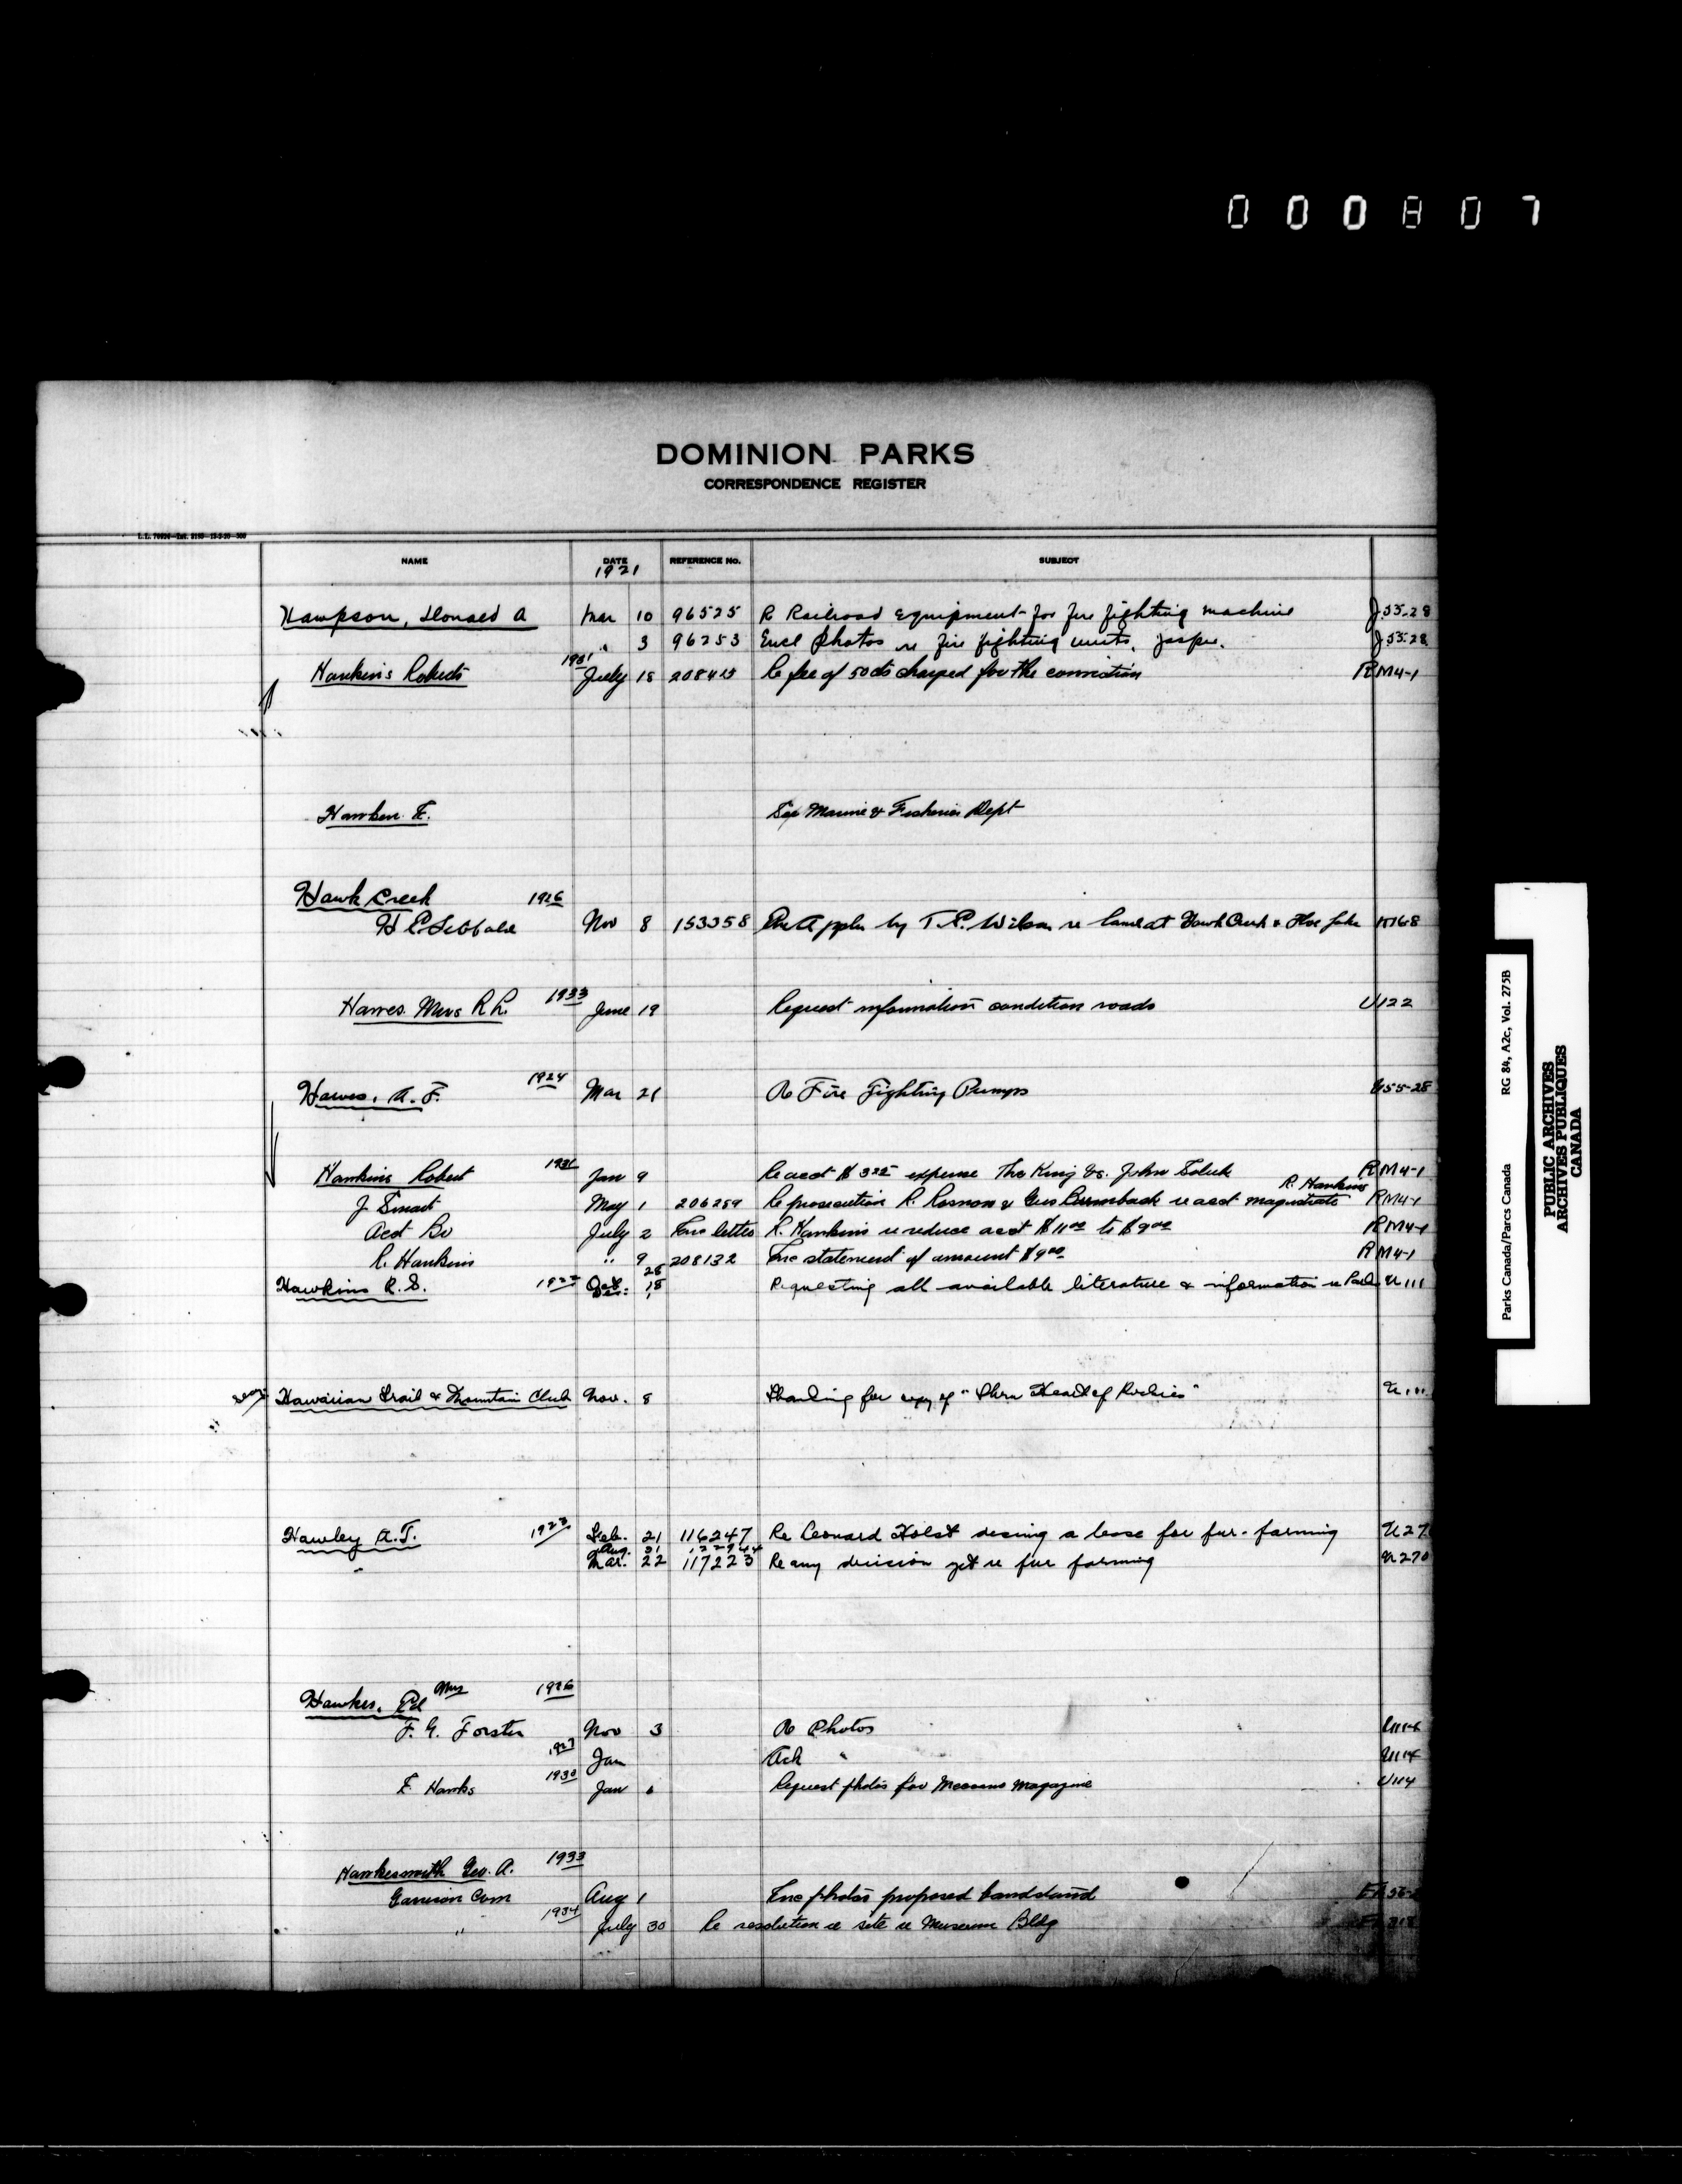 000807
DOMINION PARKS
CORRESPONDENCE REGISTER
NAME DATE REFERENCE No. SUBJECT
1921
Hampson, Donald A Mar 10 96525 R Railroad equipment for fire fighting machine J55-28
" 3 96253 Encl photos re fire fighting units, Jasper. J55-28
Hankins Roberts 1931 July 15 Re fee of 50cts charged for the conviction RM4-1
Hawken E. See Marine & Fisheries Dept
Hawk Creek 1926
Nov 8 153358 Re Appln by T.P. Wilson re land at Hawk Creek &
Hawes Mrs R R. 1933 June 19 Request information condition roads U122
Hawes, A. F. 1924 Mar 21 Re Fire Fighting Pumps
Hankins Robert Jan 9 Re acct expense The King vs. John RM4-1
R. Hankins
J Smart May 1 206259 Re prosecution R. & re acct magistrate RM4-1
July 2 Enc letter R. Hankins re reduce acct $11.00 to $9.00 RM4-1
R. Hankins " 9 208132 Enc statement of amount $9.00 RM4-1
Hawkins R. S. Oct. Requesting all available literature & information re Parks U111
Hawaiian Trail & Mountain Club Nov. 8 Thanking for copy of "Thru Heart of Rockies"
Hawley A.T. 1923 Feb. 21 116247 Re Leonard Holst desiring a lease for fur-farming
Aug. 31
Mar. 22 117223 Re any decision yet re fur farming U270
Hawkes, Ed Mrs 1926
F. G. Forster Nov 3 Re Photos U114
1927 Jan Ack " U114
E Hawks 1930 Jan Request photos for magazine U114
Hawkesworth Geo. A. 1933
Garrison Com Aug 1 Enc photos proposed bandstand
" 1934 July 30 Re resolution re site re Museum Bldg
Parks Canada/Parcs Canada RG 84, A2c, Vol. 275B
PUBLIC ARCHIVES
ARCHIVES PUBLIQUES
CANADA